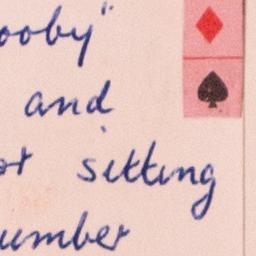 ooby"
and
ot sitting
umber